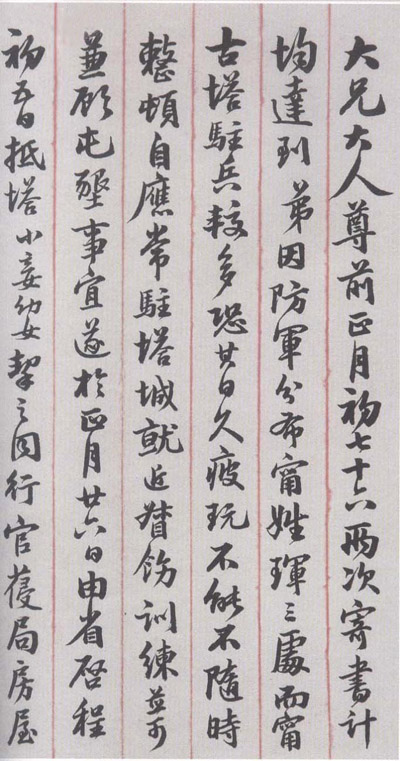 大兄大人尊前正月初七十六兩次寄書計
均達到弟因防軍分布甯姓琿三處而甯
古塔駐兵較多恐其日久疲玩不能不隨時
整頓自應常駐塔城就近督飭訓練並可
兼顧屯墾事宜遂於正月廿六日由省啓程
初五日抵塔小妾幼女挈之同行官蓡局房屋